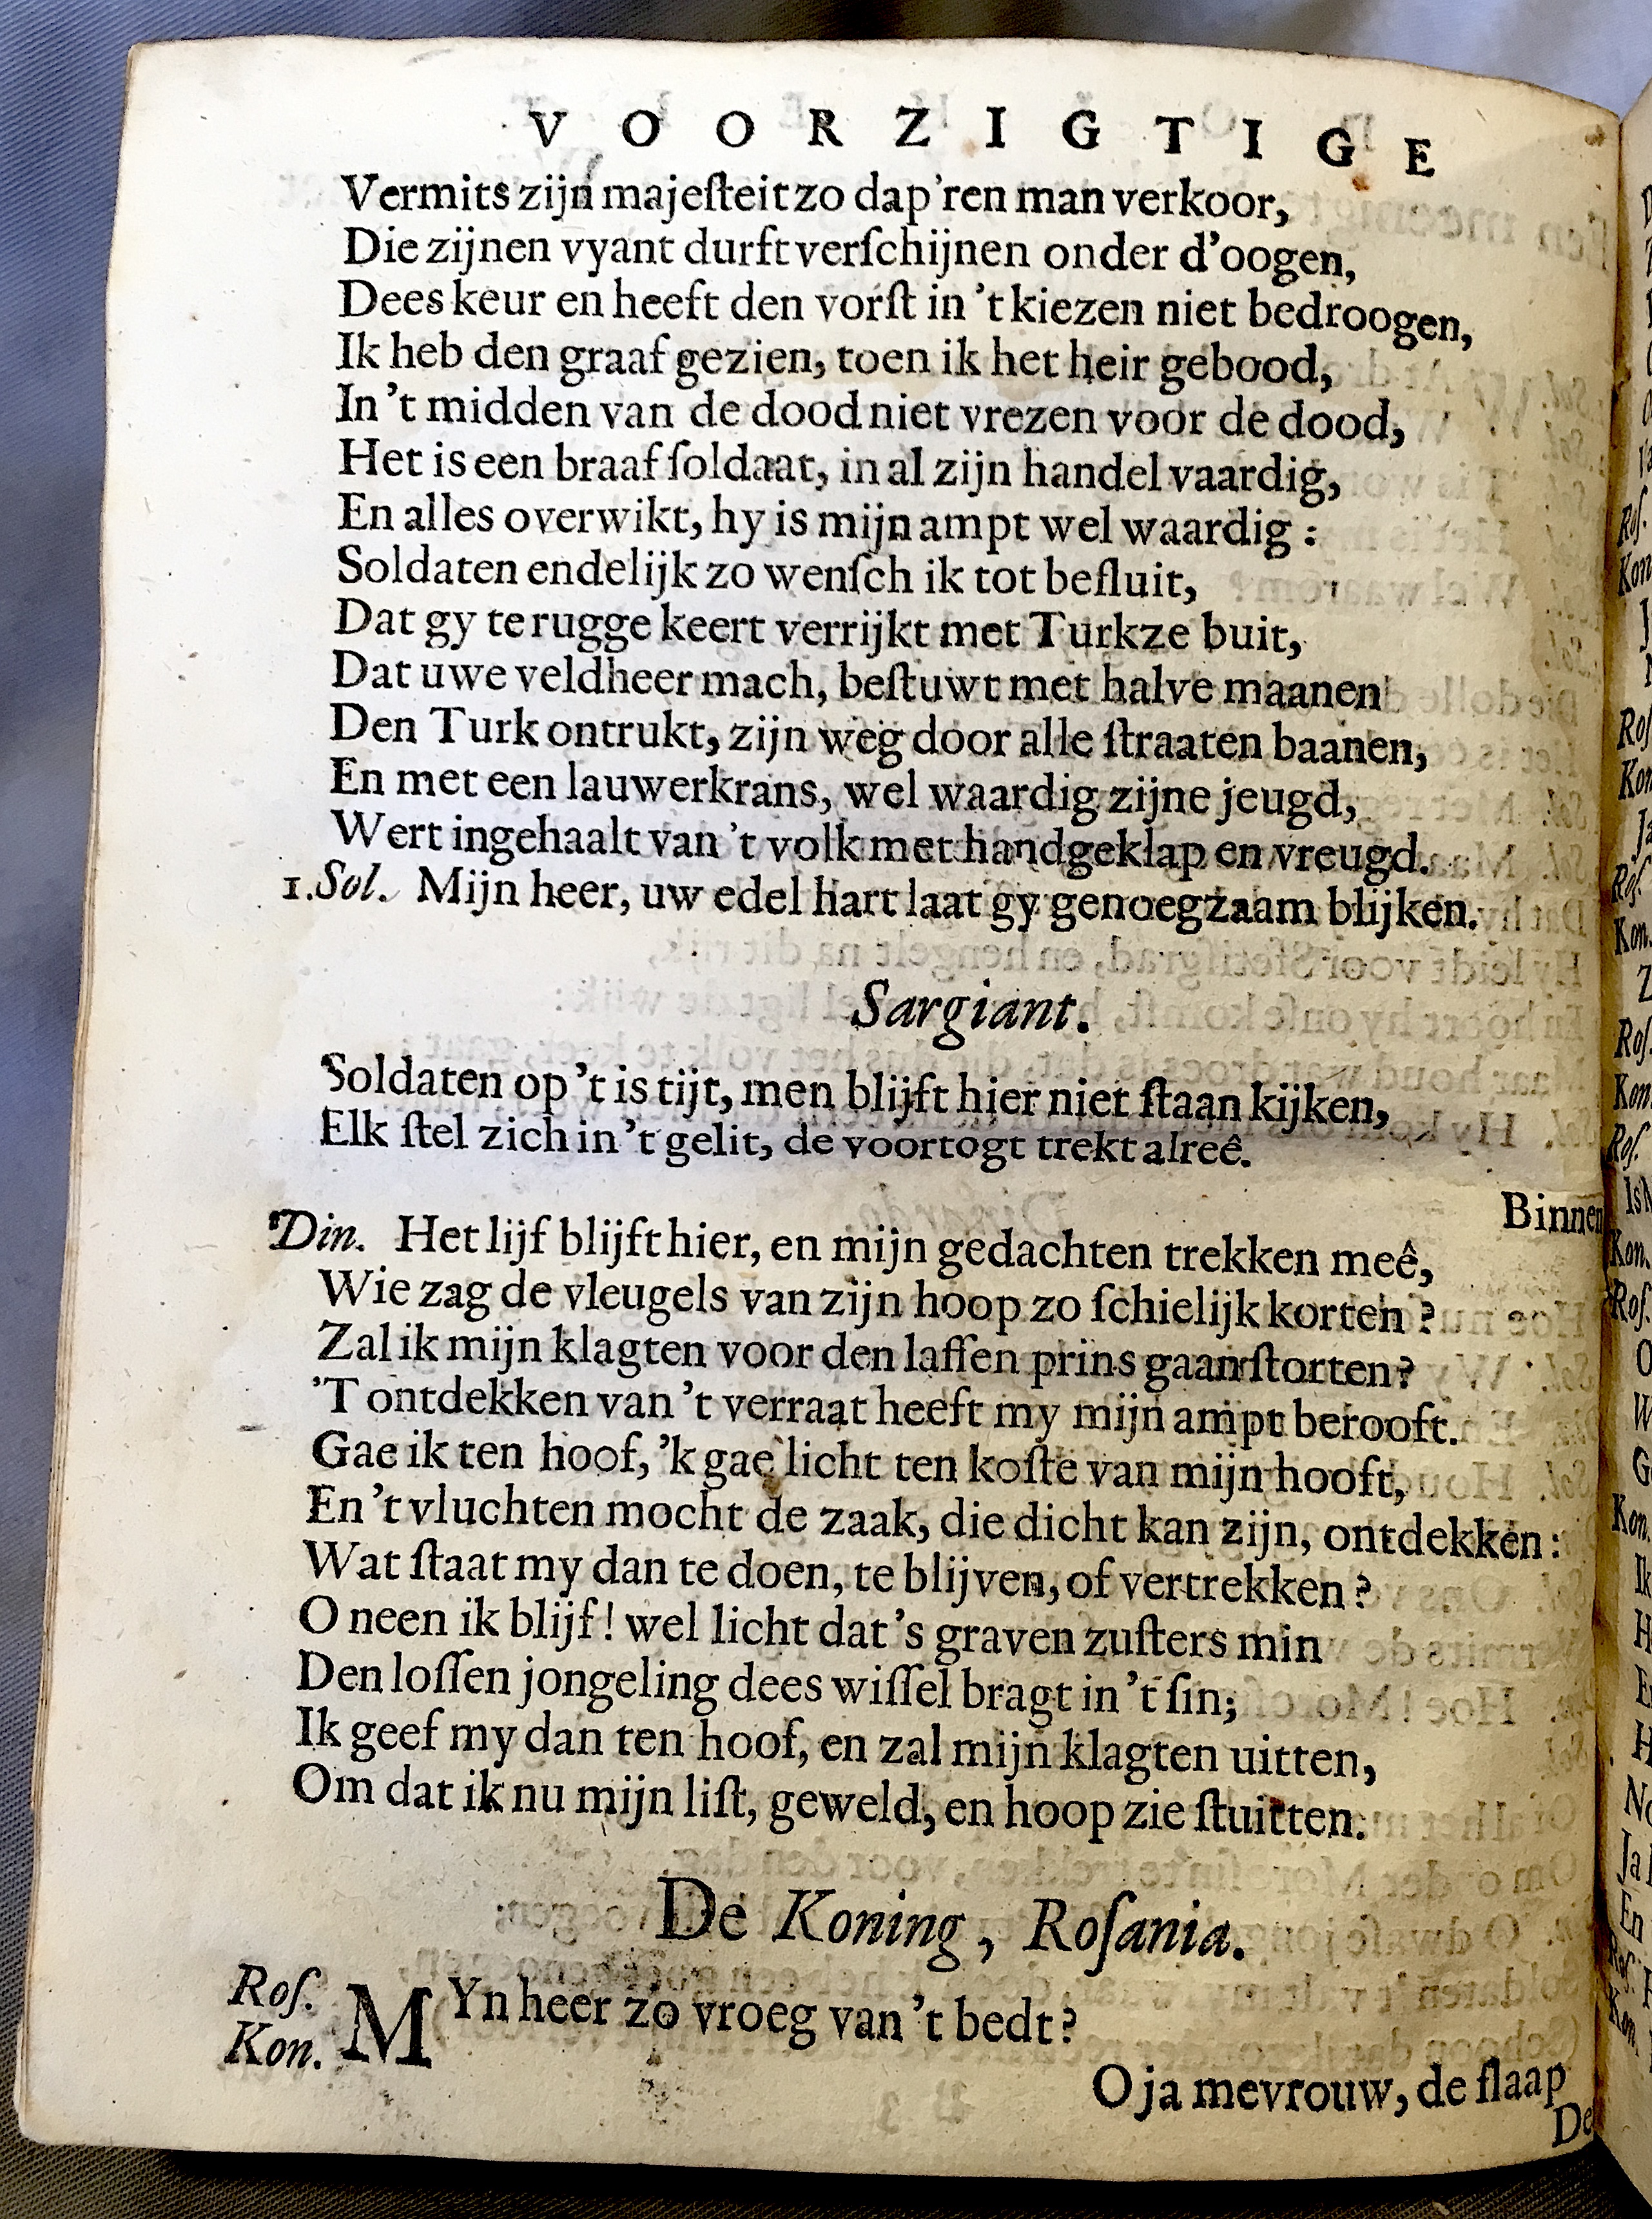 VOORZIGTIGE
Vermits zijn majeſteit zo dap'ren man verkoor,
Die zijnen vyant durft verſchijnen onder d'oogen,
Dees keur en heeft den vorſt in 't kiezen niet bedroogen,
Ik heb den graaf gezien, toen ik het heir gebood,
In 't midden van de dood niet vrezen voor de dood,
Het is een braaf ſoldaat, in al zijn handel vaardig,
En alles overwikt, hy is mijn ampt wel waardig:
Soldaten endelijk zo wenſch ik tot beſluit,
Dat gy te rugge keert verrijkt met Turkze buit,
Dat uwe veldheer mach, beſtuwt met halve maanen
Den Turk ontrukt, zijn weg door alle ſtraaten baanen,
En met een lauwerkrans, wel waardig zijne jeugd,
Wert ingehaalt van 't volk met handgeklap en vreugd.
1. Sol. Mijn heer, uw edel hart laat gy genoegzaam blijken.
Sargiant.
Soldaten op 't is tijt, men blijft hier niet ſtaan kijken,
Elk ſtel zich in 't gelit, de voortogt trekt alreê.
Binnen
Din. Het lijf blijft hier, en mijn gedachten trekken meê,
Wie zag de vleugels van zijn hoop zo ſchielijk korten?
Zal ik mijn klagten voor den laffen prins gaan ſtorten?
'T ontdekken van 't verraat heeft my mijn ampt berooft.
Gae ik ten hoof, 'k gae licht ten koſte van mijn hooft,
En 't vluchten mocht de zaak, die dicht kan zijn, ontdekken:
Wat ſtaat my dan te doen, te blijven, of vertrekken?
O neen ik blijf! wel licht dat 's graven zuſters min
Den loſſen jongeling dees wiſſel bragt in 't ſin;
Ik geef my dan ten hoof, en zal mijn klagten uitten,
Om dat ik nu mijn liſt, geweld, en hoop zie ſtuitten.
De Koning, Roſania.
Roſ. MYn heer zo vroeg van 't bedt?
Kon. O ja mevrouw, de ſlaap
De